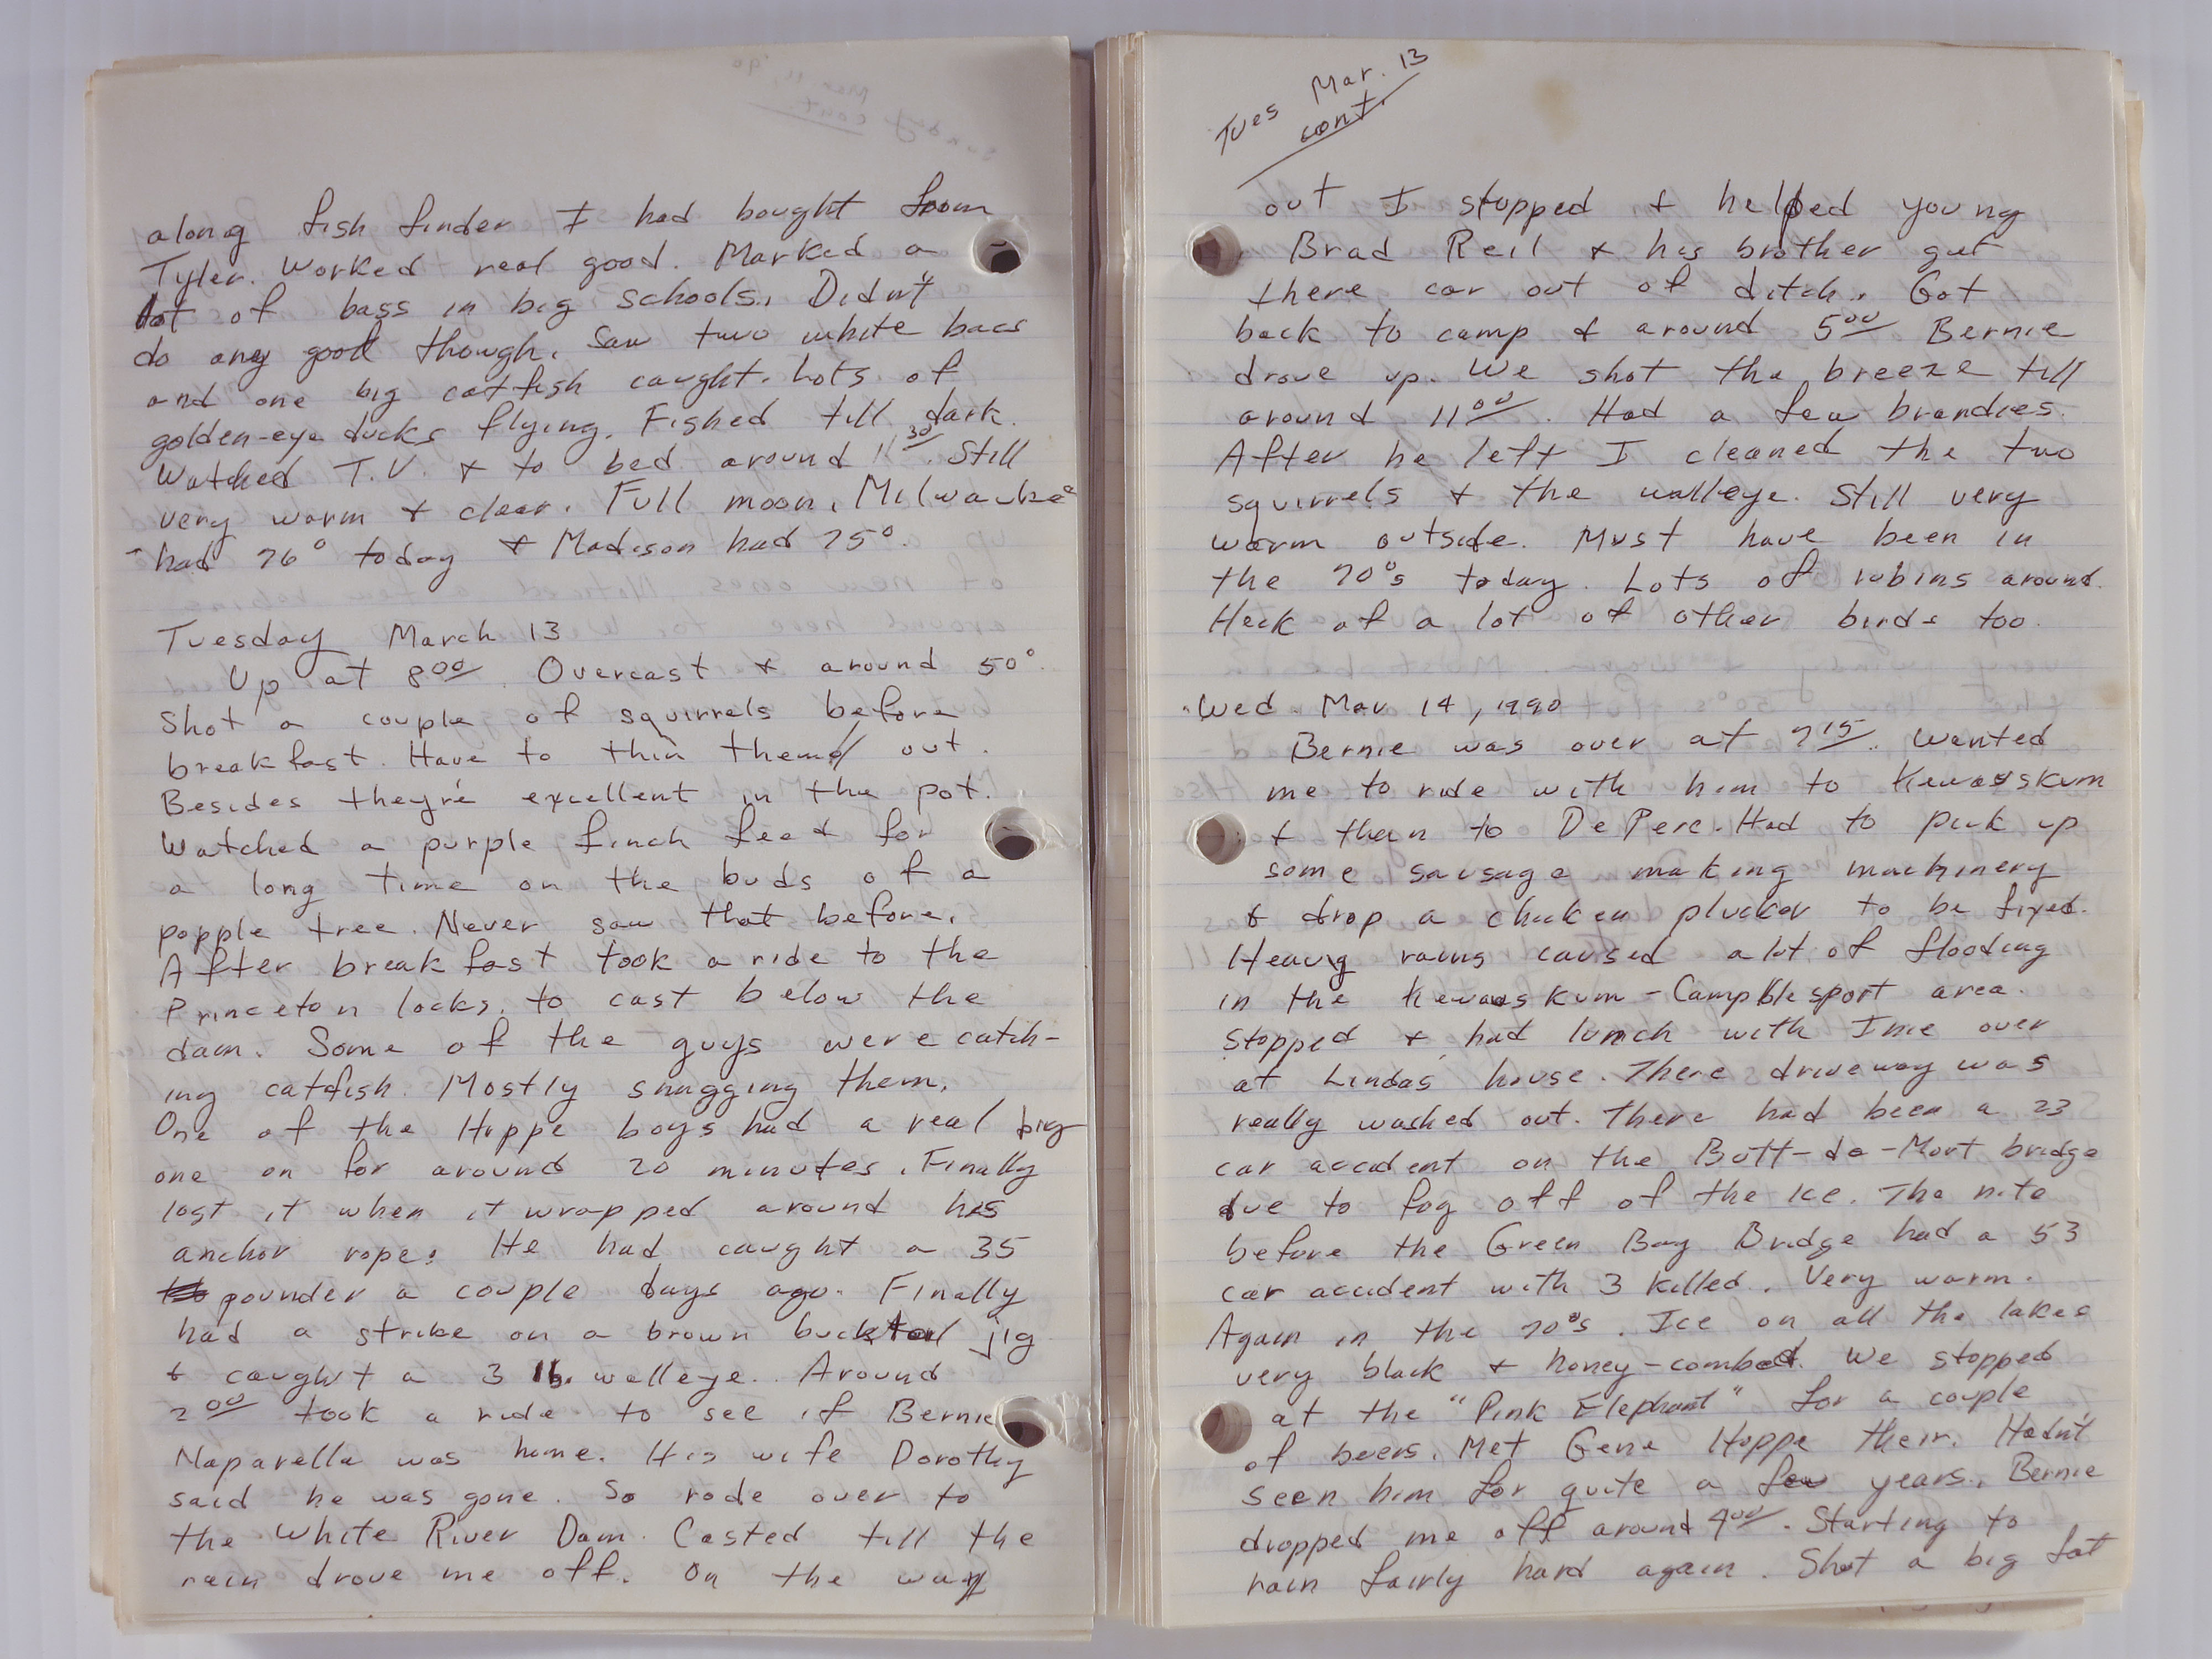 along fish finder I had bought from
Tyler. Worked real good. Marked a
lot of bass in big schools. Didn't
do any good though. Saw two white bass
and one big catfish caught. Lots of
golden-eye ducks flying. Fished till dark.
Watched T.V. & to bed around 11 30. Still
very warm & clear. Full moon. Milwaukee
had 76° today & Madison had 75°.
Tuesday March 13
Up at 8 00. Overcast & around 50°.
Shot a couple of squirrels before
breakfast. Have to thin them out.
Besides they're excellent in the pot.
Watched a purple finch feed for
a long time on the buds of a
popple tree. Never saw that before.
After breakfast took a ride to the
Princeton locks, to cast below the
dam. Some of the guys were catch-
ing catfish. Mostly snagging them.
One of the Hoppe boys had a real big
one on for around 20 minutes. Finally
lost it when it wrapped around his
anchor rope. He had caught a 35
pounder a couple days ago. Finally
had a strike on a brown bucktail jig
& caught a 3 lb. walleye. Around
2 00 took a ride to see if Bernie
Naparella was home. His wife Dorothy
said he was gone. So rode over to
the White River Dam. Casted till the
rain drove me off. On the way
Tues Mar. 13
cont.
out I stopped & helped young
Brad Reil & his brother get
there car out of ditch. Got
back to camp & around 5 00 Bernie
drove up. We shot the breeze till
around 11 00. Had a few brandies.
After he left I cleaned the two
squirrels & the walleye. Still very
warm outside. Must have been in
the 70°s today. Lots of robins around.
Heck of a lot of other birds too.
Wed. Mar 14, 1990
Bernie was over at 7 15. Wanted
me to ride with him to Kewaskum
& then to De Pere. Had to pick up
some sausage making machinery
& drop a chicken plucker to be fixed.
Heavy rains caused a lot of flooding
in the Kewaskum - Campblesport area.
Stopped & had lunch with Ime over
at Lindas house. There driveway was
really washed out. There had been a 23
car accident on the Butt-de-Mort bridge
due to fog off of the ice. The nite
before the Green Bay Bridge had a 53
car accident with 3 killed. Very warm.
Again in the 70°s. Ice on all the lakes
very black & honey-combed. We stopped
at the "Pink Elephant" for a couple
of beers. Met Gene Hoppe their. Hadn't
seen him for quite a few years. Bernie
dropped me off around 4 00. Starting to
rain fairly hard again. Shot a big fat